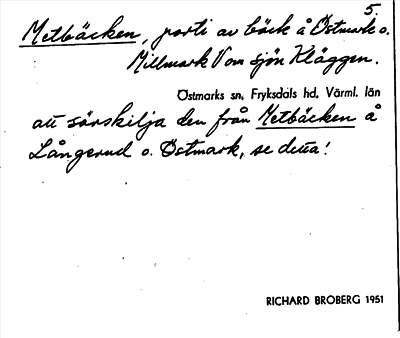 5.
Metbäcken, parti av bäck å Östmark o.
Millmark V om sjön Kläggen.
Östmarks sn, Fryksdals hd, Värml. län
att särskilja den från Metbäcken å
Långerud o. Östmark, se detta!
RICHARD BROBERG 1951